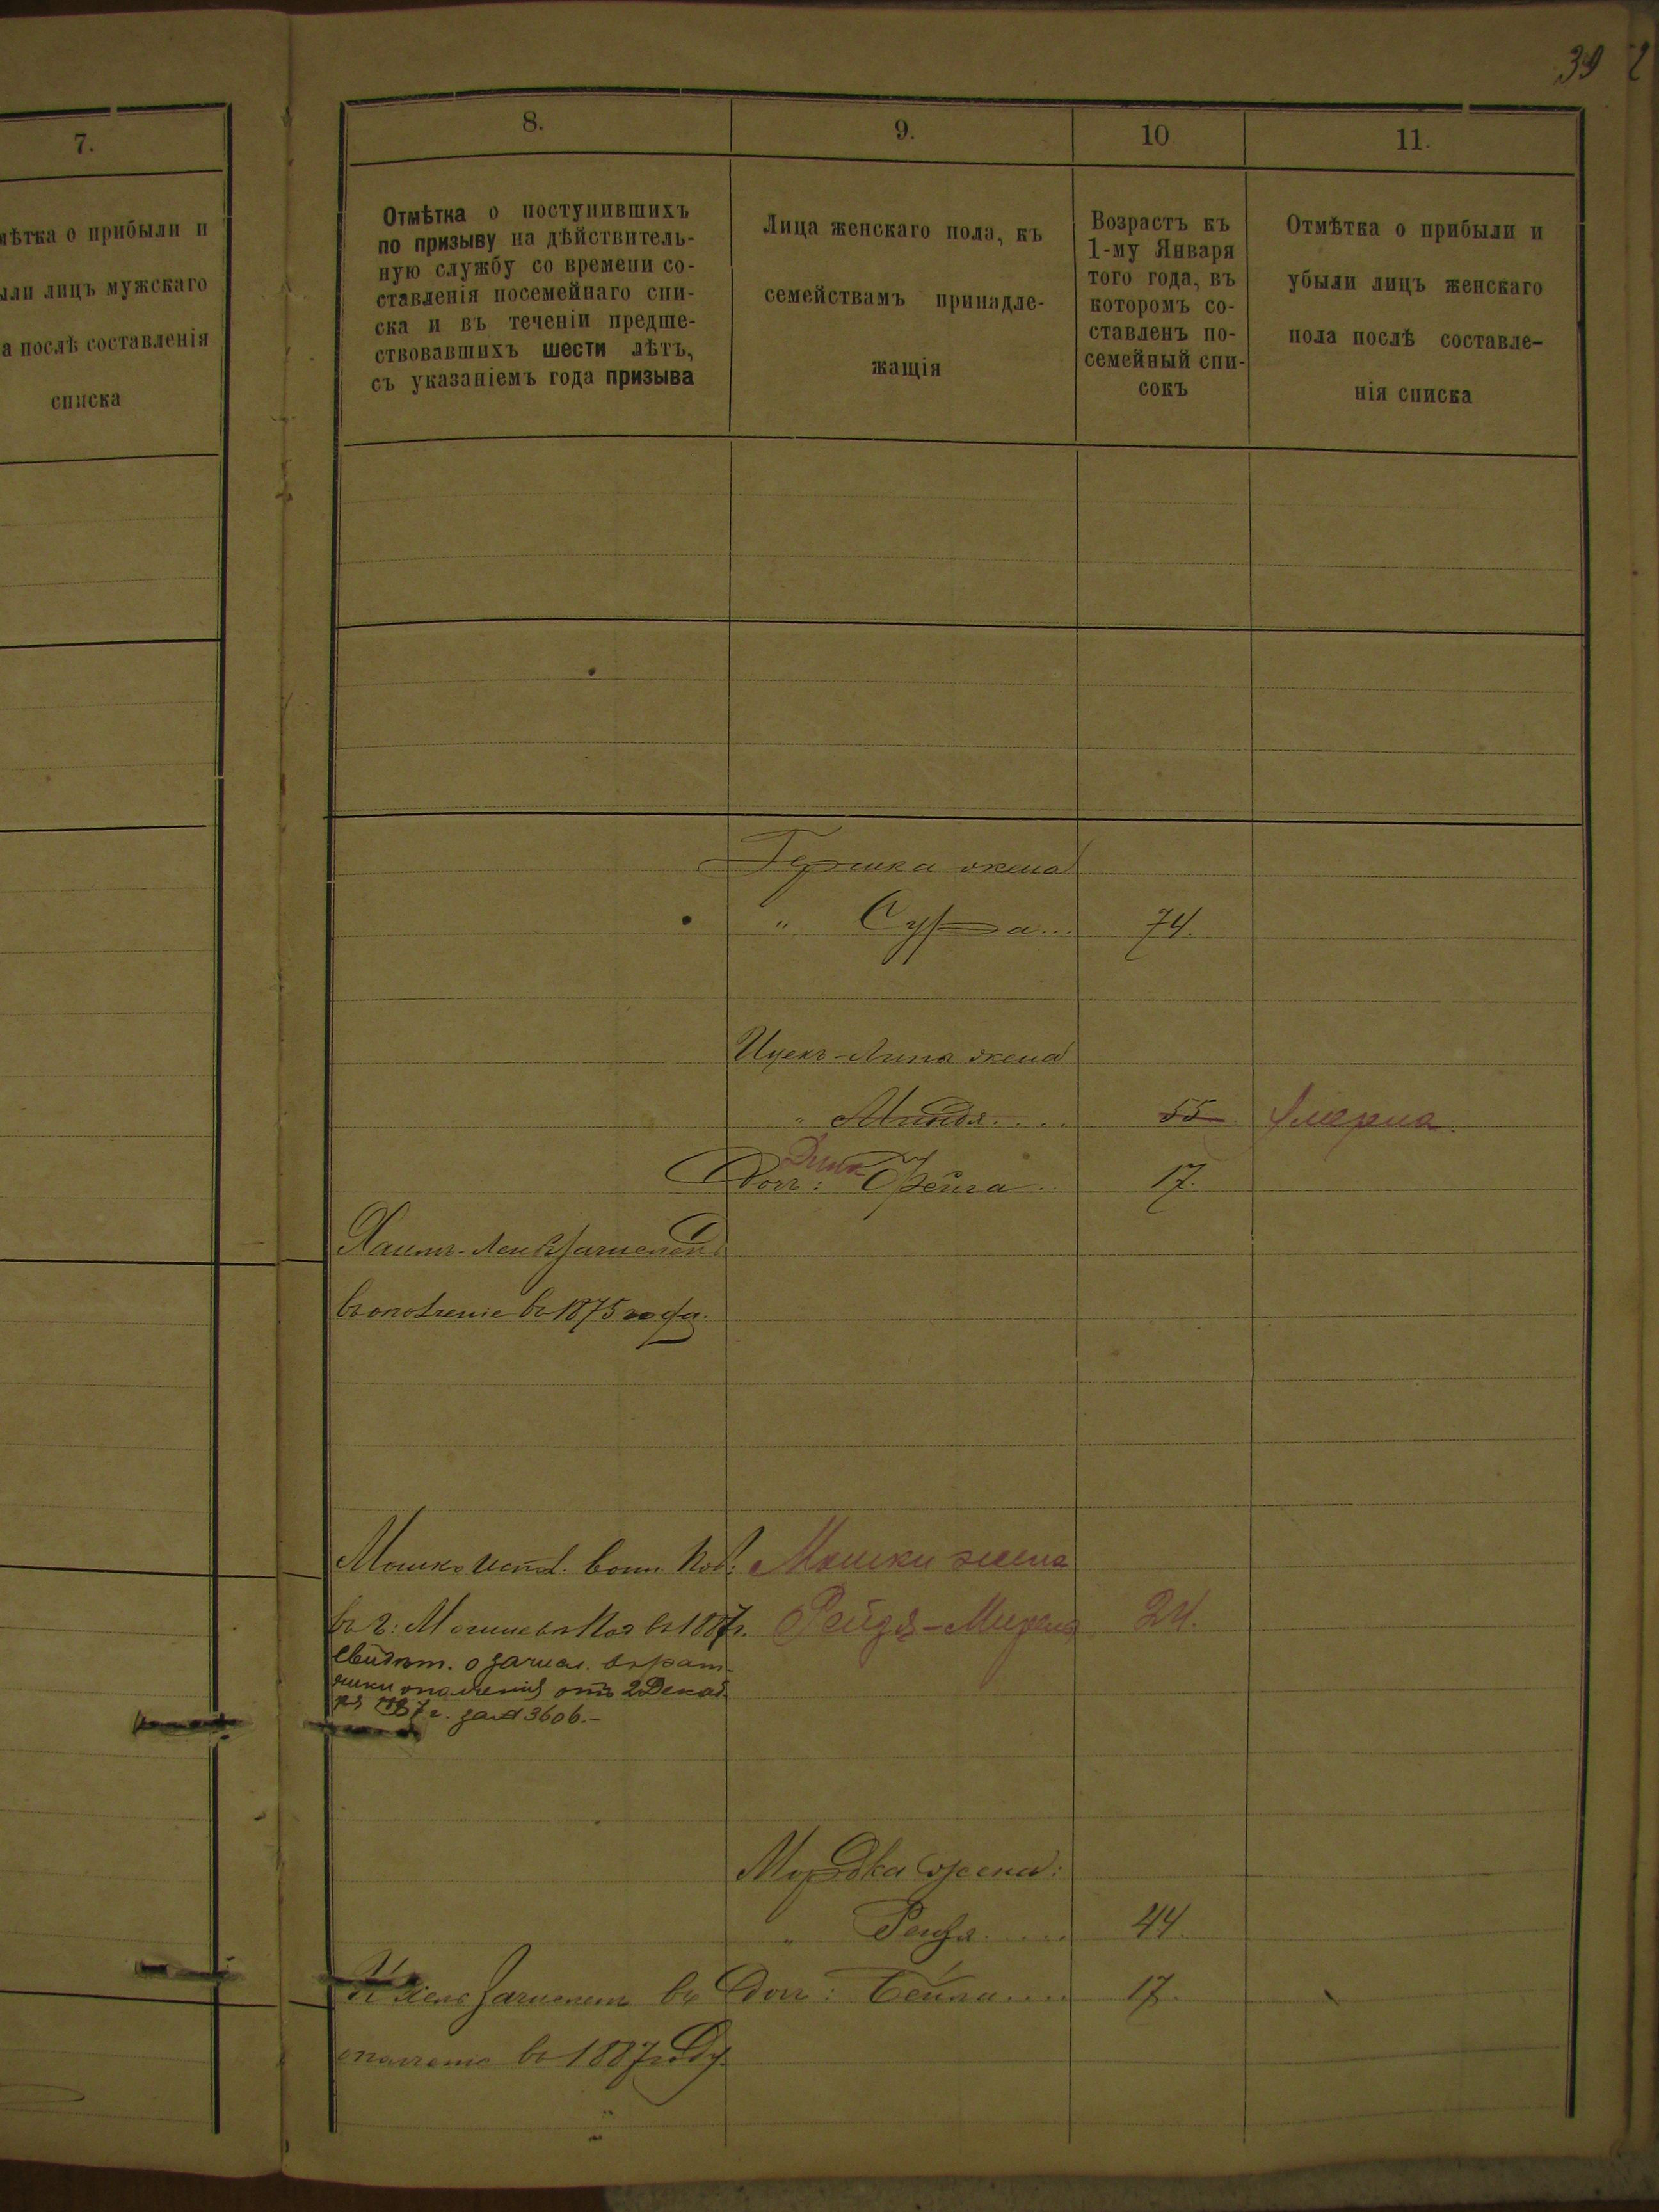 39
7.
мѣтка о прибыли и
ыли лицъ мужскаго
а послѣ составленія
списка
8.
Отмѣтка о поступившихъ
по призыву на дѣйствитель-
ную службу со времени со-
ставленія посемейнаго спи-
ска и въ теченіи предше-
ствовавшихъ шести лѣтъ,
съ указаніемъ года призыва
9.
Лица женскаго пола, къ
семействамъ принадле-
жащія
10
Возрастъ къ
1-му Января
того года, въ
которомъ со-
ставленъ по-
семейный спи-
сокъ
11.
Отмѣтка о прибыли и
убыли лицъ женскаго
пола послѣ составле-
нія списка
Гершка жена
" Сура... 74.
Ицекъ-Липа жена
" Миндя.... 55 Умерла.
Доч: Фейга 17.
Хаимъ- зачисленъ
въ ополченіе въ 1875 года.
Мошко воин. Мошки жена
въ г: въ 1887г. Рейдя-Мирена 24.
свидѣт. о зачисл. въ рат-
ники ополченія отъ 2 Декаб
ря 1887 г. за № 3606.-
Мордка жена:
" 44.
зачисленъ въ Доч: Бейла.... 17.
ополченіе въ 1887 году